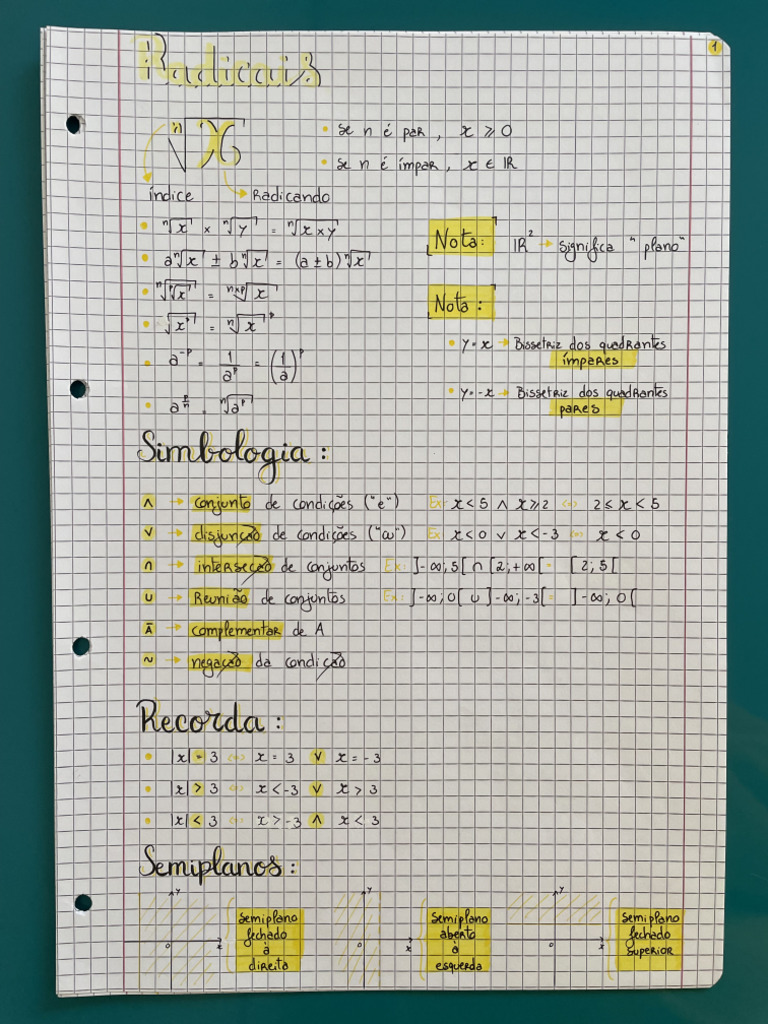 1
Radicais
ⁿ√x
• se n é par, x ⩾ 0
• se n é ímpar, x ∈ IR
índice → Radicando
• ⁿ√x × ⁿ√y = ⁿ√x×y
• aⁿ√x ± bⁿ√x = (a ± b)ⁿ√x
• ⁿ√ᵖ√x = ⁿˣᵖ√x
• √xᵖ = ⁿ√x ᵖ
• a⁻ᵖ = 1/aᵖ = (1/a)ᵖ
• a^(p/n) = ⁿ√aᵖ
Nota: IR² → significa "plano"
Nota:
• y=x → Bissetriz dos quadrantes
ímpares
• y=-x → Bissetriz dos quadrantes
pares
Simbologia:
∧ → conjunto de condições ("e") Ex: x<5 ∧ x⩾2 ⇔ 2 ≤ x < 5
∨ → disjunção de condições ("ou") Ex x<0 ∨ x<-3 ⇔ x < 0
∩ → interseção de conjuntos Ex: ]-∞;5[ ∩ [2;+∞[ = [2;5[
∪ → Reunião de conjuntos Ex: ]-∞;0[ ∪ ]-∞;-3[ = ]-∞;0[
Ā → complementar de A
~ → negação da condição
Recorda:
• |x| = 3 ⇔ x = 3 ∨ x = -3
• |x| > 3 ⇔ x < -3 ∨ x > 3
• |x| < 3 ⇔ x > -3 ∧ x < 3
Semiplanos:
y
0
x
semiplano
fechado
à
direita
y
0
x
semiplano
aberto
à
esquerda
y
0
x
semiplano
fechado
superior